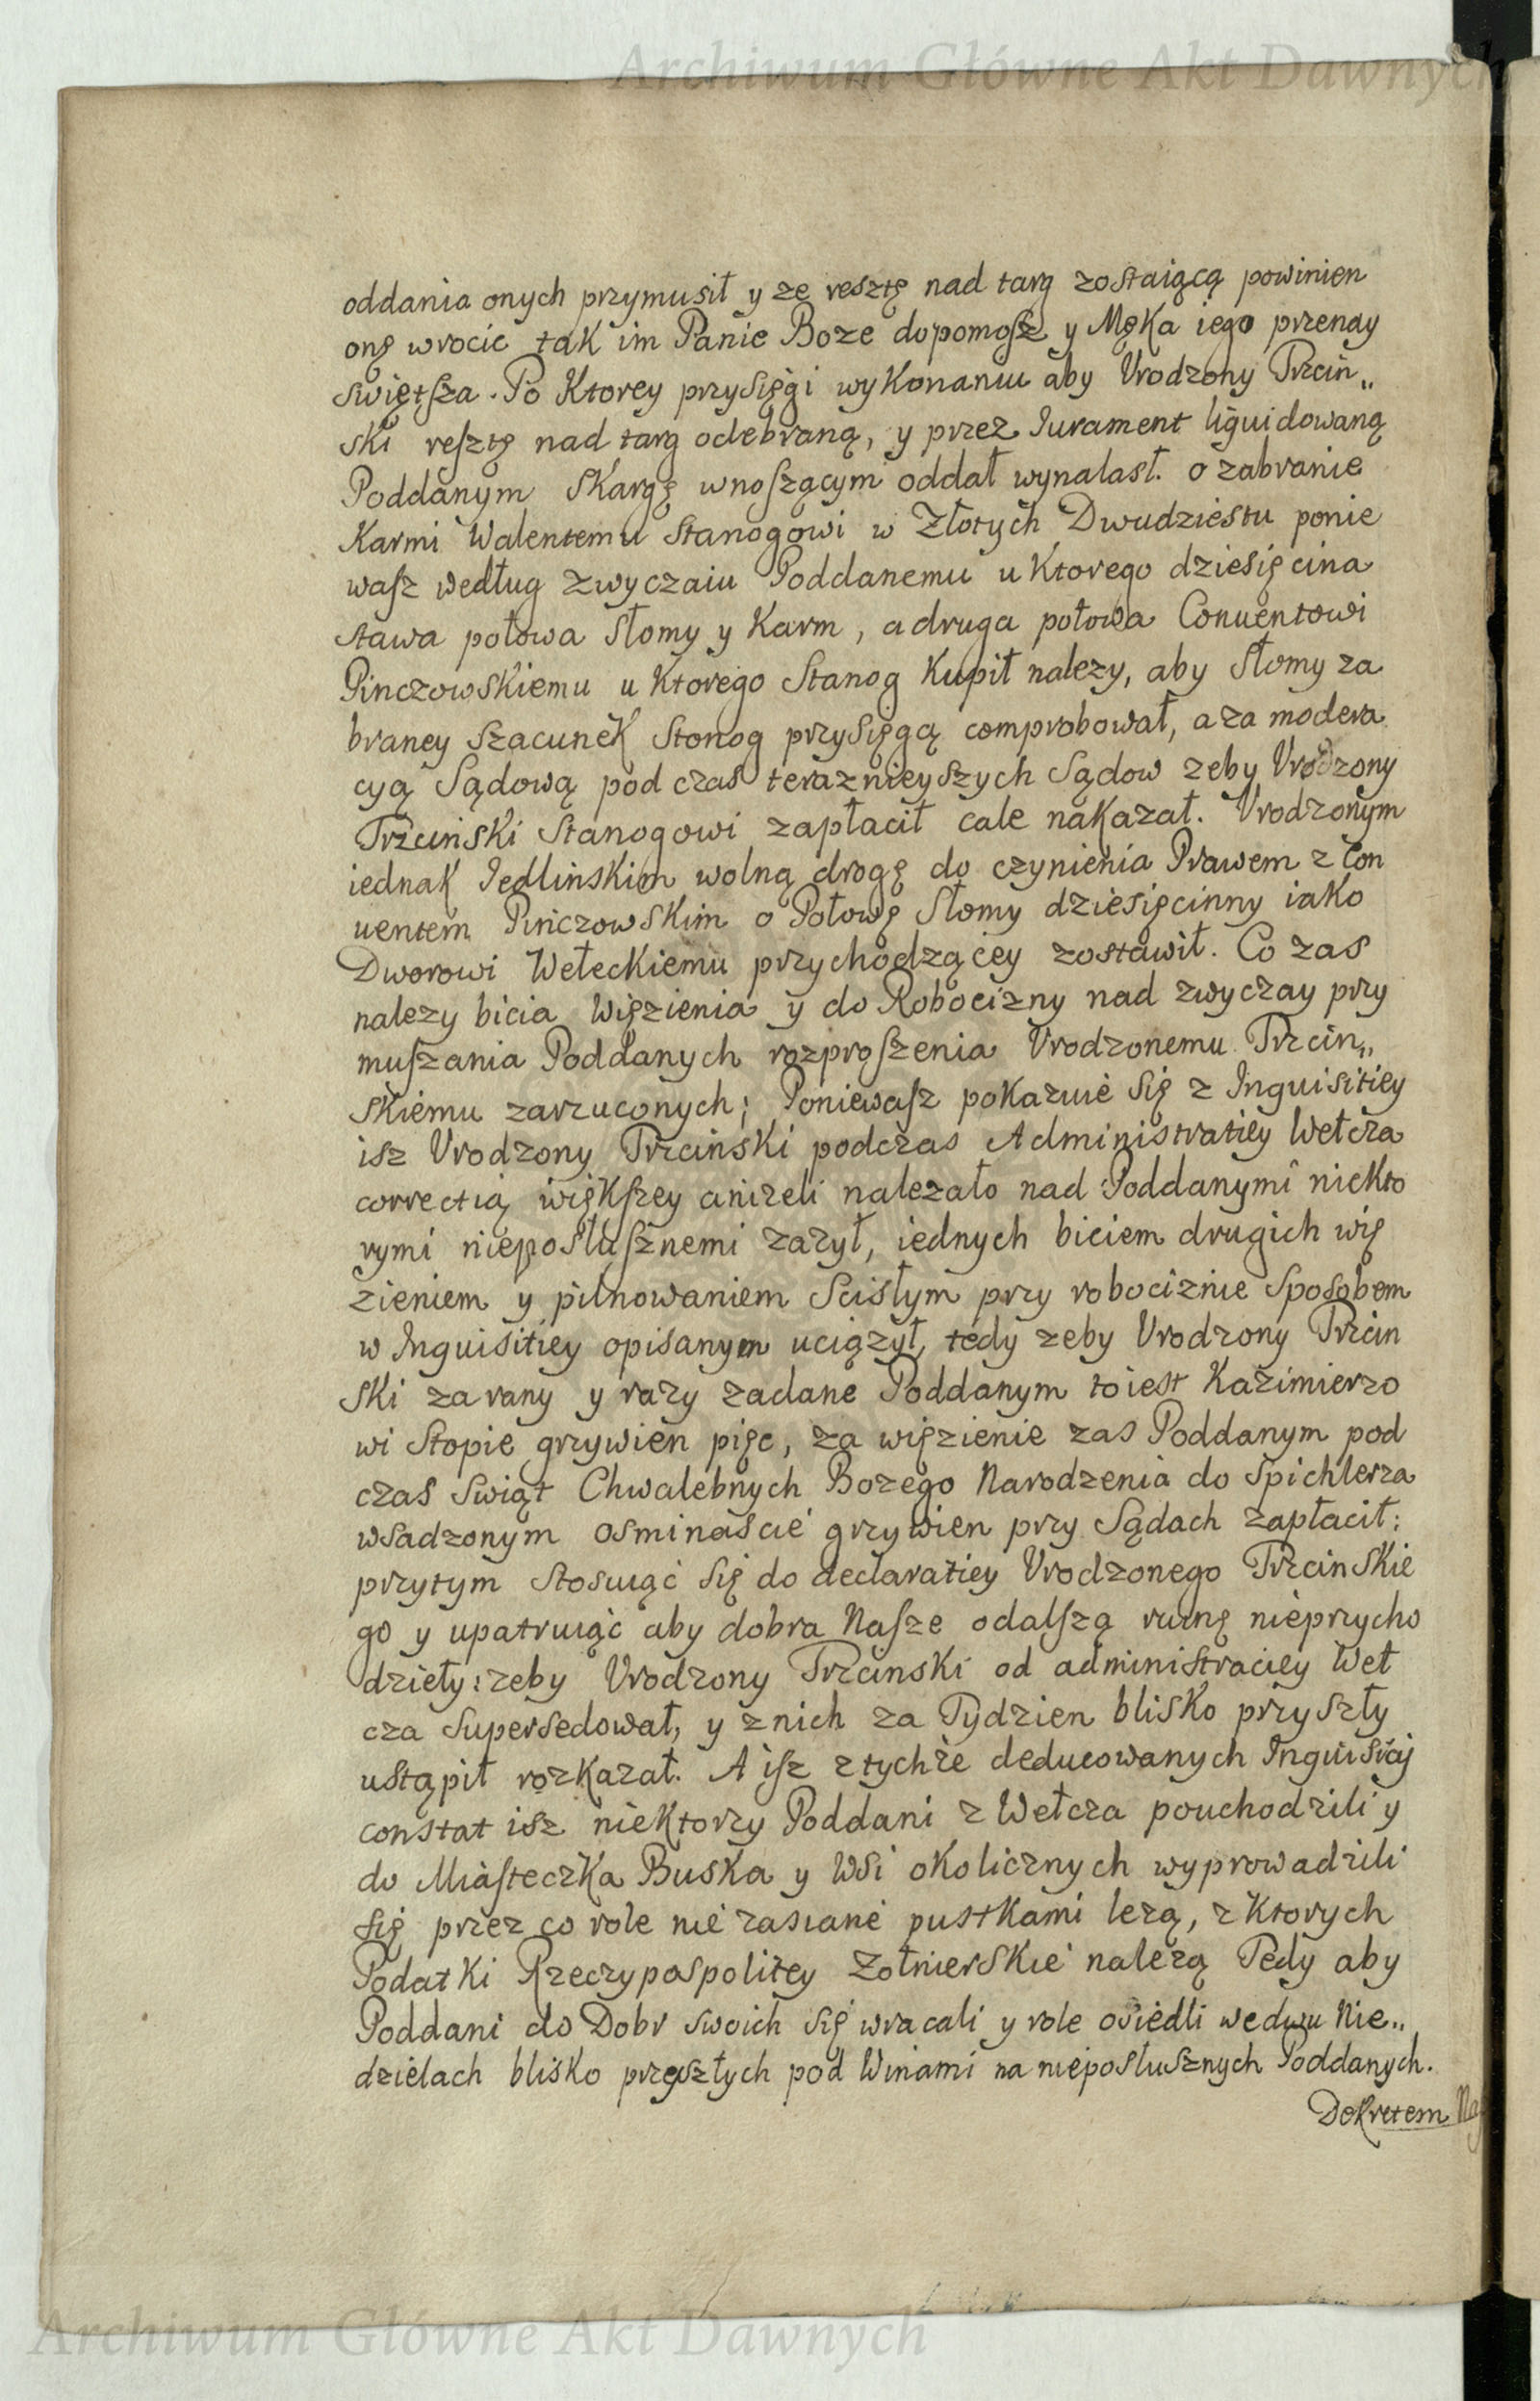 Archiwum Główne Akt Dawnych
oddania onych przymusił y ze resztę nad targ zostaiącą powinien
onę wrocic tak im Panie Boze dopomosz y Męka iego przenay
swiętsza. Po Ktorey przysięgi wykonaniu aby Vrodzony Trzcin„
ski resztę nad targ odebraną, y przez Iurament liquidowaną
Poddanym skargę wnoszącym oddał wynalasł. o zabranie
Karmi Walentemu Stanogowi w Złotych Dwudziestu ponie
wasz według zwyczaiu Poddanemu u Ktorego dziesięcina
stawa połowa Słomy y Karm, a druga połowa Conuentowi
Pinczowskiemu u Ktorego Stanog Kupił nalezy, aby Słomy za
braney szacunek Stonog przysięgą comprobował, a za modera
cyą Sądową pod czas teraznieyszych Sądow zeby Vrodzony
Trzcinski Stanogowi zapłacił cale nakazał. Vrodzonym
iednak Iedlinskim wolną drogę do czynienia Prawem z Con
uentem Pinczowskim o Połowę Słomy dziesięcinny iako
Dworowi Wełeckiemu przychodzącey zostawił. Co zas
nalezy bicia Więzienia y do Robocizny nad zwyczay przy
muszania Poddanych rozproszenia Vrodzonemu Trzcin„
skiemu zarzuconych; Poniewasz pokazuie się z Inquisitiey
isz Vrodzony Trzcinski podczas Administratiey Wełcza
correctią większey anizeli nalezało nad Poddanymi niekto
rymi nieposłusznemi zazył, iednych biciem drugich wię
zieniem y pilnowaniem Scisłym przy robociznie Sposobem
w Inquisitiey opisanym uciązył, tedy zeby Vrodzony Trzcin
ski za rany y razy zadane Poddanym toiest Kazimierzo
wi Stopie grzywien pięc, za więzienie zas Poddanym pod
czas Swiąt Chwalebnych Bozego Narodzenia do Spichlerza
wsadzonym osminascie grzywien przy Sądach zapłacił:
przytym stosuiąc się do declaratiey Vrodzonego Trzcinskie
go y upatruiąc aby dobra Nasze odalszą ruinę nieprzycho
dzieły: zeby Vrodzony Trzcinski od administraciey Weł
cza supersedował, y znich za Tydzien blisko przyszły
ustąpił rozkazał. A isz ztychze deducowanych Inquisicij
constat isz niektorzy Poddani z Wełcza pouchodzili y
do Miasteczka Buska y Wsi okolicznych wyprowadzili
się przez co role nie zasiane pustkami lezą, z Ktorych
Podatki Rzeczypospolitey Zołnierskie nalezą Tedy aby
Poddani do Dobr swoich się wracali y role osiedli wedwu Nie„
dzielach blisko przyszłych pod Winami na nieposłusznych Poddanych.
Dekretem
Archiwum Główne Akt Dawnych